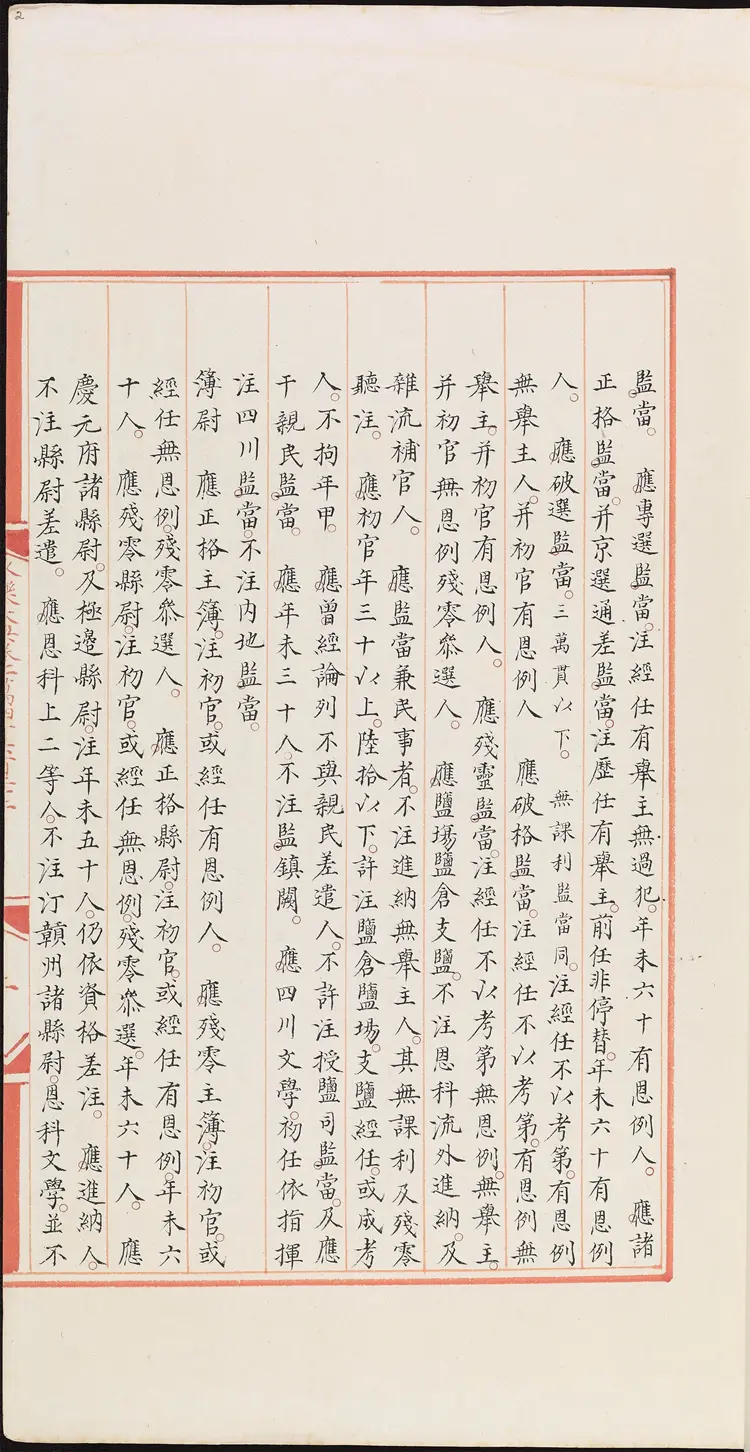 2
監當。應專選監當。注經任有舉主無過犯。年未六十有恩例人。應諸
正格監當。并京選通差監當。注歷任有舉主。前任非停替。年未六十有恩例
人。應破選監當。三萬貫以下。無課利監當同。注經任不以考第。有恩例
無舉主人。并初官有恩例人 應破格監當。注經任不以考第。有恩例無
舉主。并初官有恩例人。應殘靈監當。注經任不以考第無恩例。無舉主。
并初官無恩例殘零叅選人。應鹽場鹽倉支鹽。不注恩科流外進納。及
雜流補官人。應監當兼民事者。不注進納無舉主人。其無課利及殘零
聽注。應初官年三十以上。陸拾以下。許注鹽倉鹽場。支鹽經任。或成考
人。不拘年甲。應曾經論列不與親民差遣人。不許注授鹽司監當。及應
干親民監當。應年未三十人。不注監鎮闕。應四川文學。初任依指揮
注四川監當。不注内地監當。
簿尉 應正格主簿。注初官。或經任有恩例人。應殘零主簿。注初官。或
經任無恩例。殘零叅選人。應正格縣尉。注初官。或經任有恩例。年未六
十人。應殘零縣尉。注初官。或經任無恩例。殘零叅選。年未六十人。應
慶元府諸縣尉。及極邊縣尉。注年未五十人。仍依資格差注。應進納人。
不注縣尉差遣。應恩科上二等人。不注汀贛州諸縣尉。恩科文學。並不